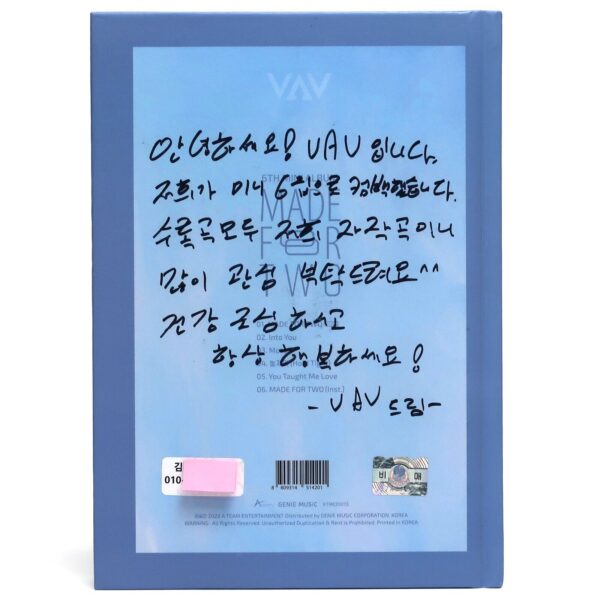 VAV
안녕하세요! VAV 입니다.
6TH MINI ALBUM
저희가 미니 6집으로 컴백했습니다.
MADE
수록곡모두 저희 자작곡이니
FOR
많이 관심 부탁드려요^^
TWO
건강 조심 하시고
02. Into You
항상 행복하세요!
05. You Taught Me Love
06. MADE FOR TWO (Inst.)
-VAV 드림-
김
010-
8 809314 514201
비 매
GENIE MUSIC
℗&© 2022 A TEAM ENTERTAINMENT Distributed by GENIE MUSIC CORPORATION, KOREA
WARNING: All Rights Reserved. Unauthorized Duplication & Rent is Prohibited. Printed in KOREA